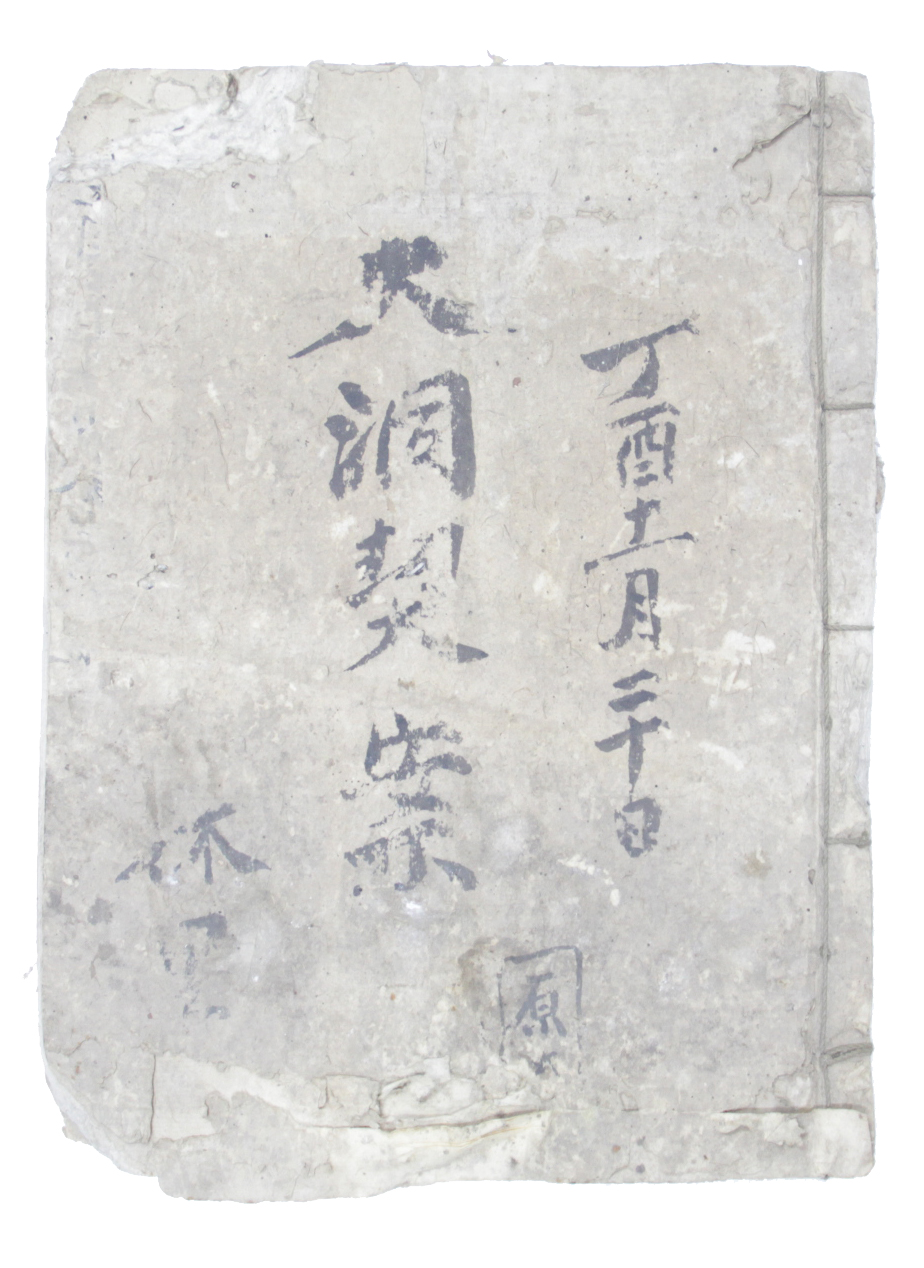 丁酉十二月二十日
大洞契案
原
休